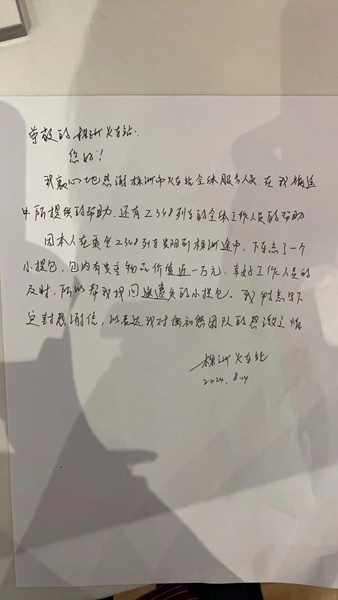 尊敬的株洲火车站:
您好!
我衷心地感谢株洲市火车站全体服务人员,在我旅途
中所提供的帮助,还有Z348列车的全体工作人员的帮助
因本人在乘坐Z348列车到株洲途中,下车丢了一个
小提包,包内有贵重物品价值近一万元,幸好工作人员的
及时,帮我找回遗失的小提包。我特意写下
这封感谢信,以表达我对你和您团队的感激之情
株洲火车站
2024.8.